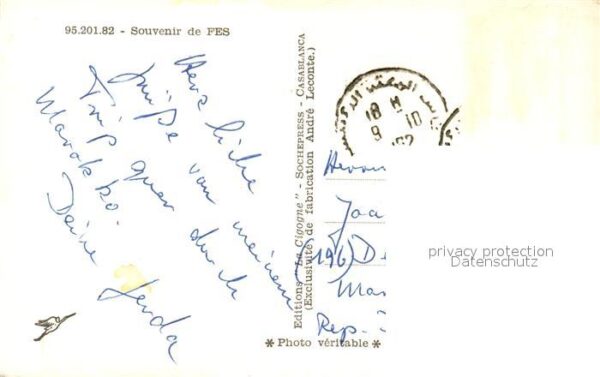 95.201.82 - Souvenir de FES
Herzliche
Grüße von meinem
Trip quer durch
Marokko.
Deine Gerda
Editions "La Cigogne" - SOCHEPRESS - CASABLANCA
(Exclusivité de fabrication André Leconte.)
18 H
9 10
Herrn
Joa
(196) De
Mas
Rep.
privacy protection
Datenschutz
* Photo véritable *